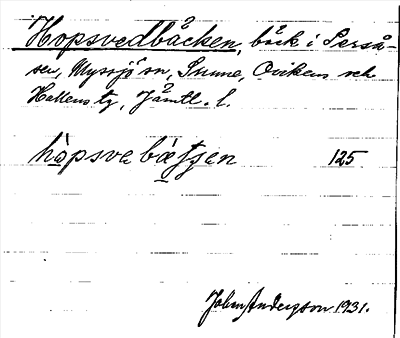 Hopsvedbäcken, bäck i Perså-
sen, Myssjö sn, Sunne, Ovikens och
Hallens tg, Jämtl. l.
hòpsve bætjen 125
Johan Anderzson 1931.